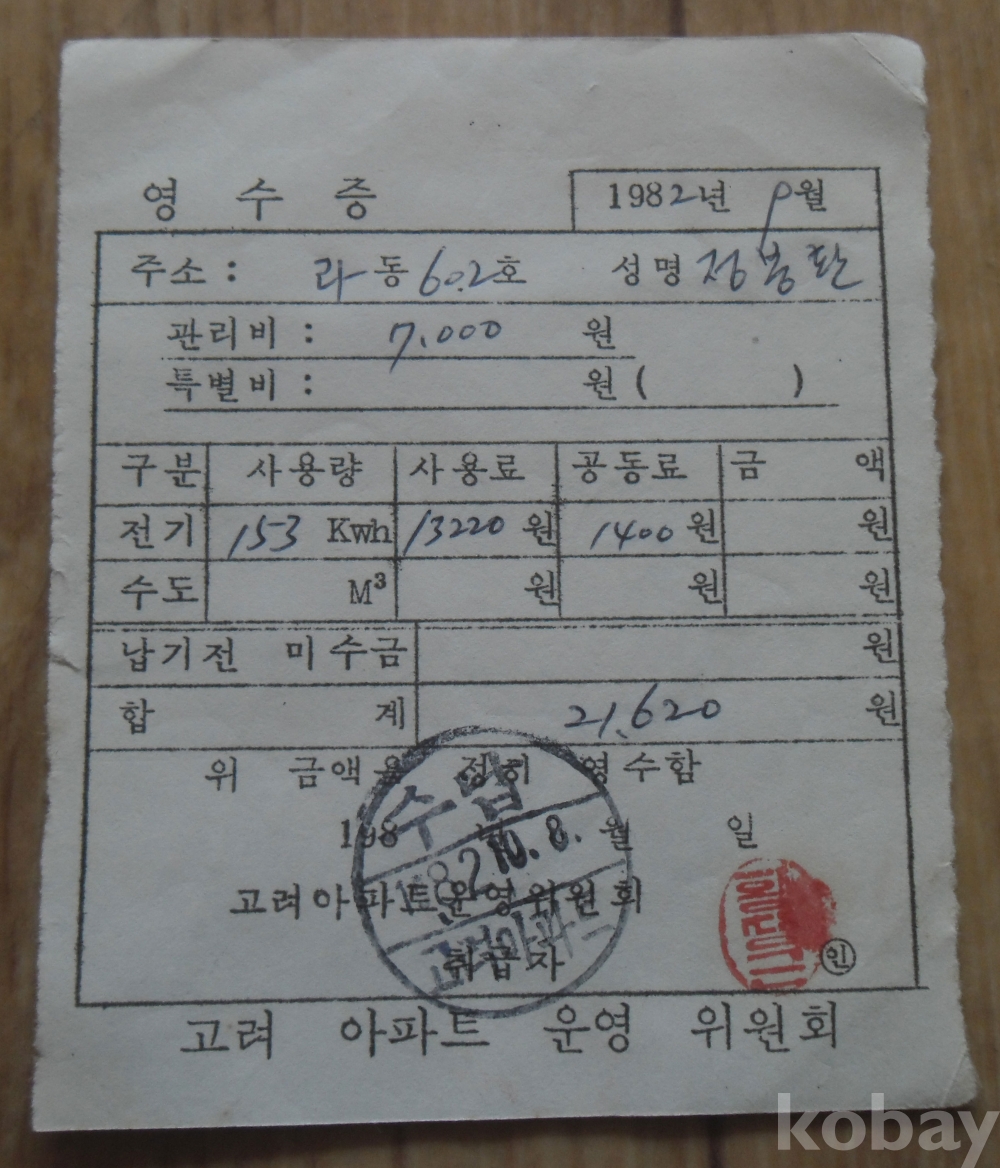 영 수 증
1982년 9월
주소 : 라동 602호 성명 정봉환
관리비 : 7,000 원
특별비 : 원 ( )
구분 사용량 사용료 공동료 금 액
전기 153 Kwh 13220 원 1400 원 원
수도 M³ 원 원 원
납기전 미수금 원
합 계 21,620 원
위 금액을 정히 영수함
198 년 월 일
수납
82 10. 8.
고려아파트
고려아파트운영위원회
취급자 ㊞
고려 아파트 운영 위원회
kobay